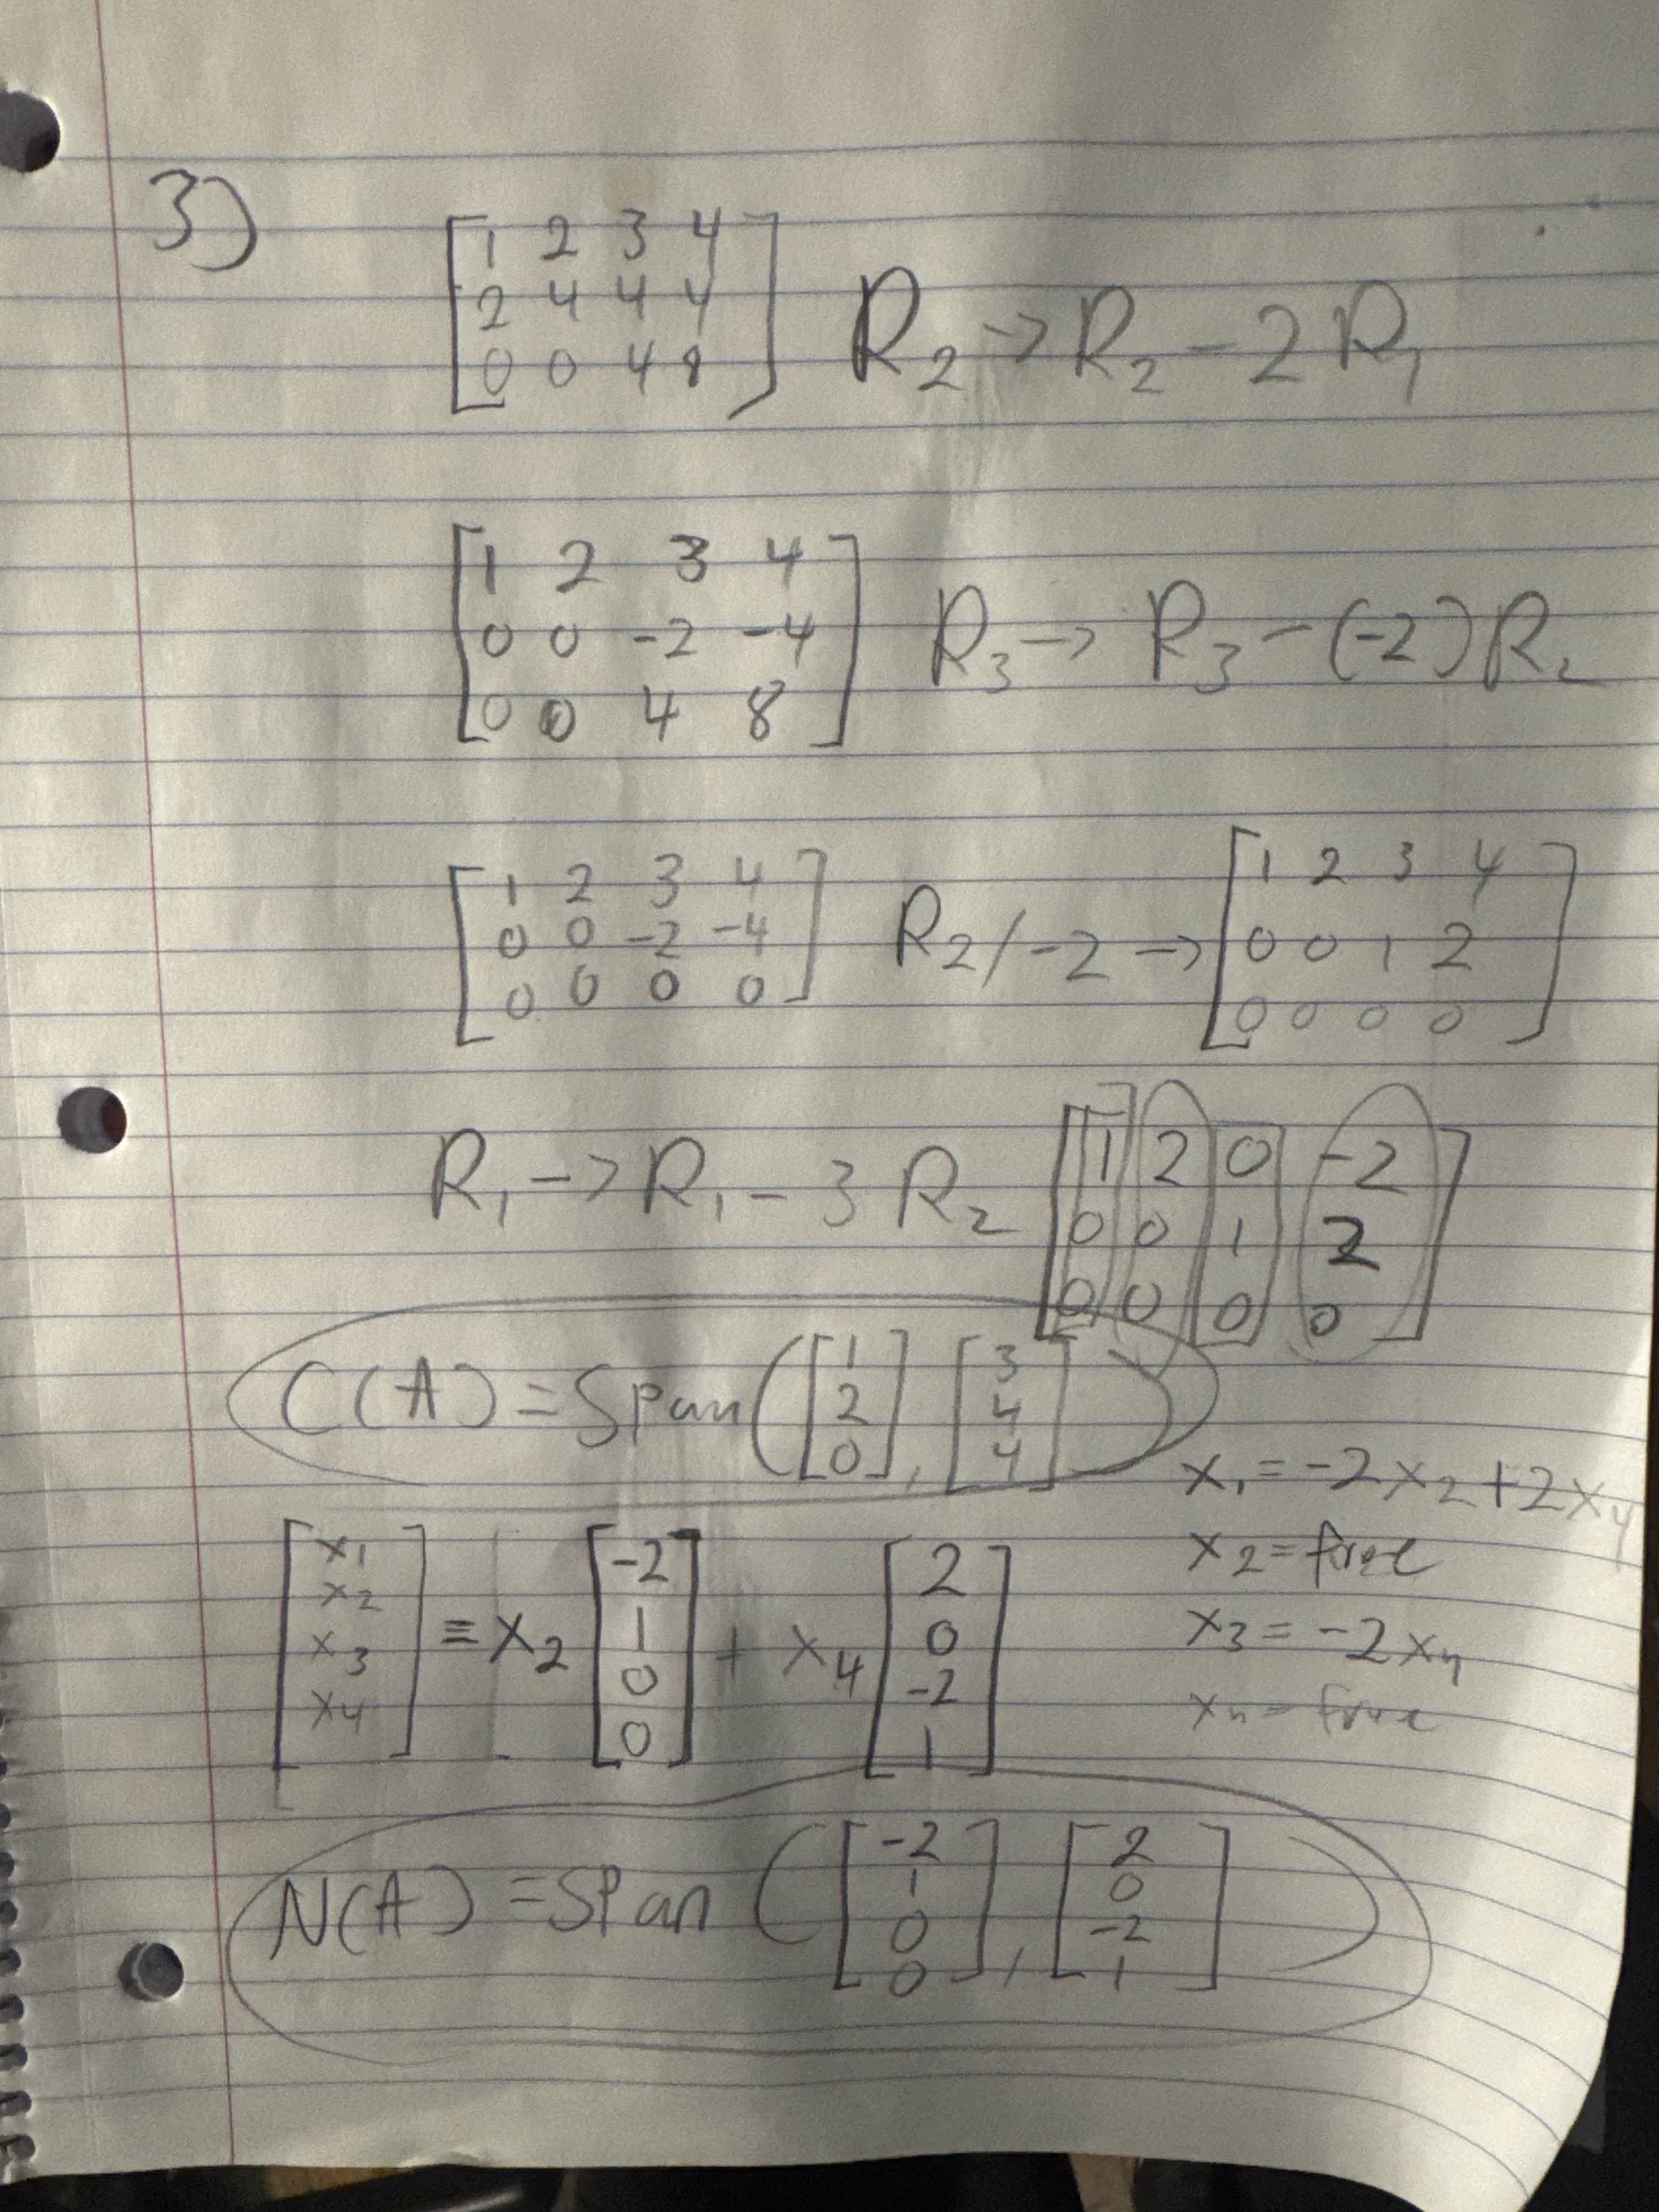 3)
[1 2 3 4
2 4 4 4
0 0 4 8] R₂ → R₂ - 2R₁
[1 2 3 4
0 0 -2 -4
0 0 4 8] R₃ → R₃ - (-2)R₂
[1 2 3 4
0 0 -2 -4
0 0 0 0] R₂/-2 → [1 2 3 4
0 0 1 2
0 0 0 0]
R₁ → R₁ - 3R₂ [1 2 0 -2
0 0 1 2
0 0 0 0]
C(A) = Span([1
2
0], [3
4
4])
[x₁
x₂
x₃
x₄] = x₂ [-2
1
0
0] + x₄ [2
0
-2
1]
x₁ = -2x₂ + 2x₄
x₂ = free
x₃ = -2x₄
x₄ = free
N(A) = Span([-2
1
0
0], [2
0
-2
1])